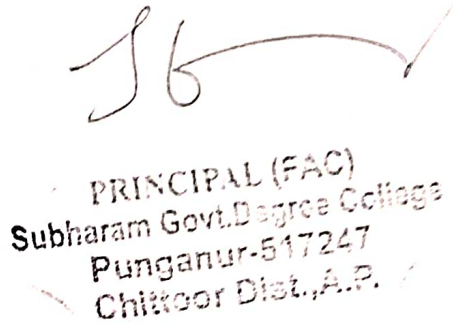 PRINCIPAL (FAC)
Subharam Govt.Degree College
Punganur-517247
Chittoor Dist.,A.P.